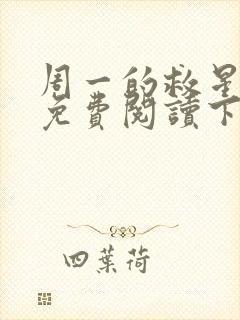 周一的救星
免費閱讀下
四葉荷